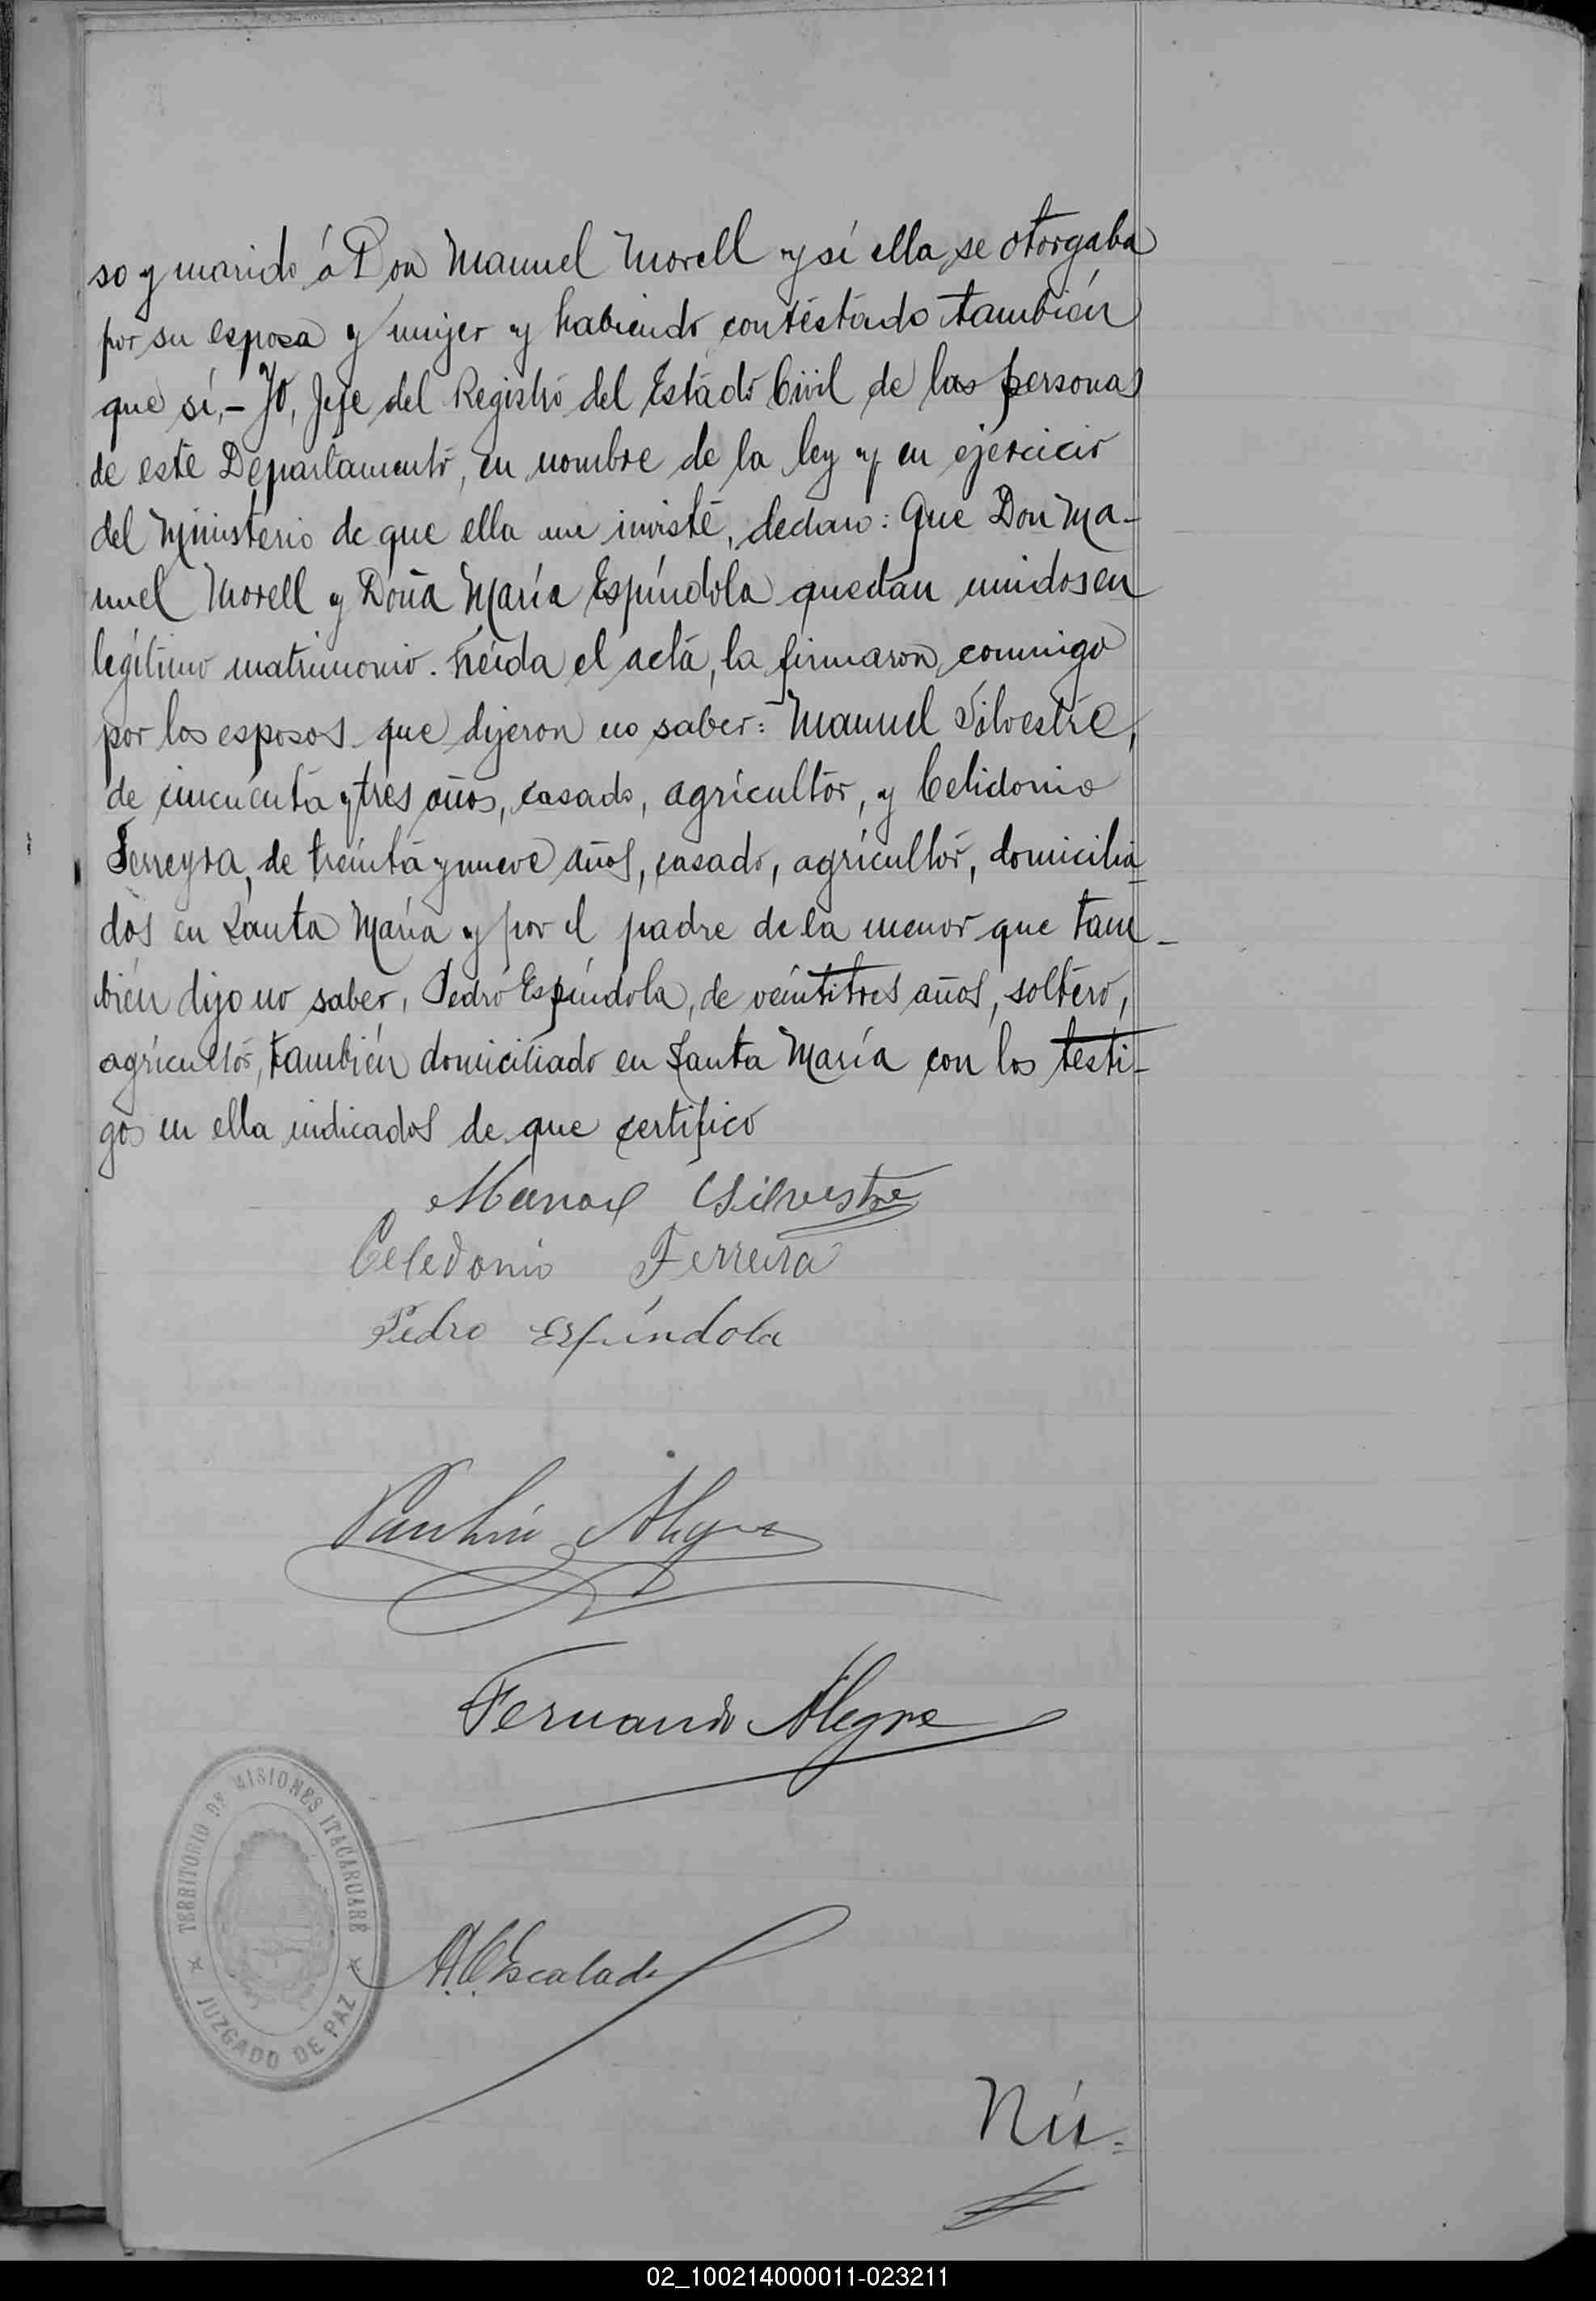 so y marido á Don Manuel Morell y si ella se otorgaba
por su esposa y mujer y habiendo contestado también
que sí,- Yo, Jefe del Registro del Estado Civil de las personas
de este Departamento, en nombre de la ley y en ejercicio
del Ministerio de que ella me inviste, declaro: Que Don Ma-
nuel Morell y Doña María Espíndola quedan unidos en
legítimo matrimonio. Leida el acta, la firmaron conmigo
por los esposos que dijeron no saber: Manuel Silvestre,
de cincuenta y tres años, casado, agricultor, y Celidonio
Ferreyra, de treinta y nueve años, casado, agricultor, domicilia
dos en Santa María y por el padre de la menor que tam-
bién dijo no saber, Pedro Espíndola, de veintitres años, soltero,
agricultor, también domiciliado en Santa María con los testi-
gos en ella indicados de que certifico
Manoel Silvestre
Celedonio Ferreira
Pedro Espíndola
Paulino Alegre
Fernando Alegre
TERRITORIO DE MISIONES ITACARUARÉ
JUZGADO DE PAZ
A. C. Escalada
Nú=
02_100214000011-023211